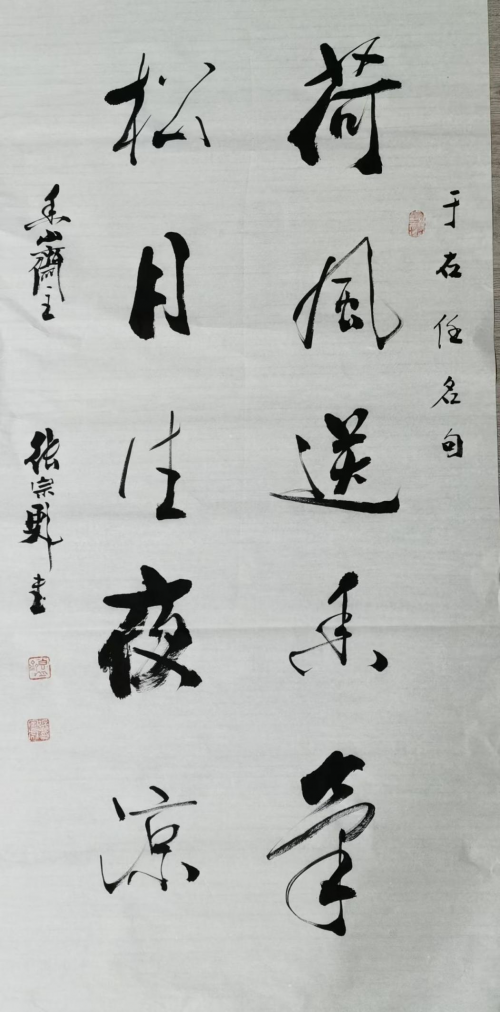 于右任名句
荷風送香氣
松月生夜涼
香山齋主
張宗彪書